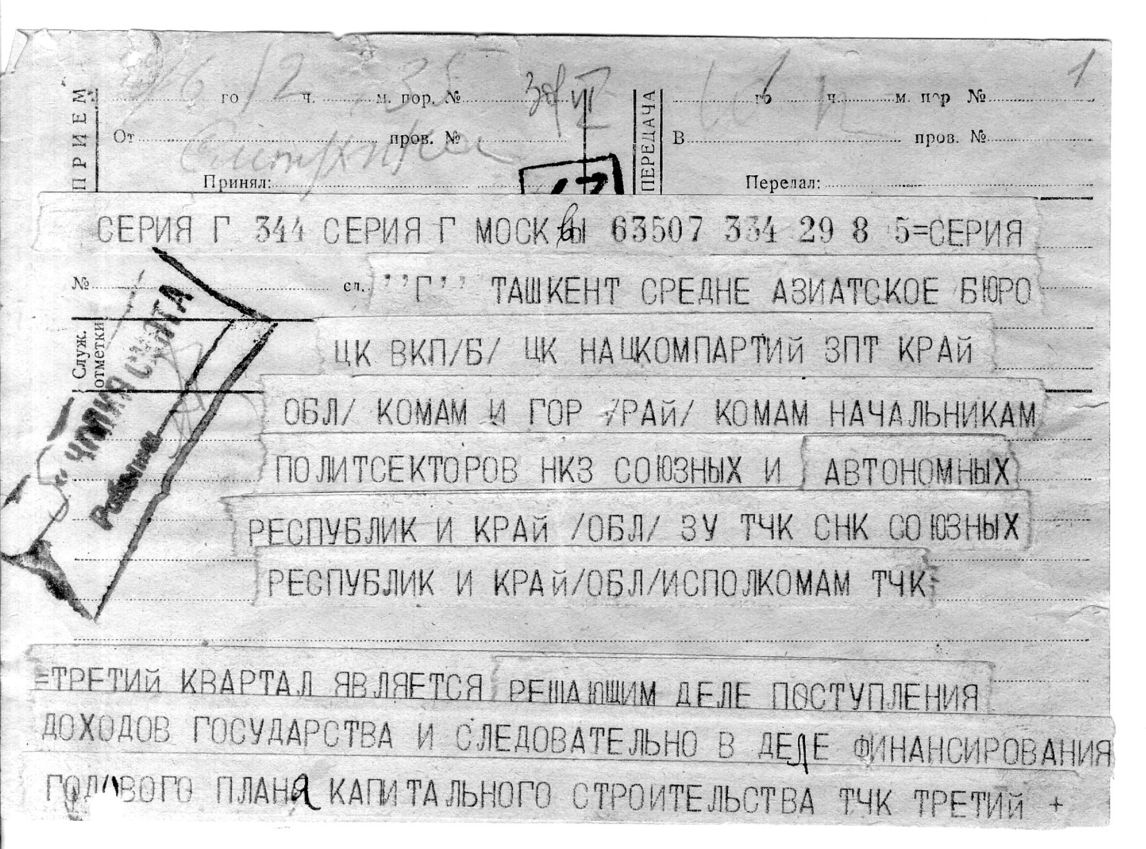 1
го ч. м. пор. №
го ч. м. пор №
ПРИЕМ
ПЕРЕДАЧА
От пров. №
В пров. №
Принял:
Передал:
СЕРИЯ Г 344 СЕРИЯ Г МОСКВЫ 63507 334 29 8 5=СЕРИЯ
№ сл. ,,Г,, ТАШКЕНТ СРЕДНЕ АЗИАТСКОЕ БЮРО
Служ. отметки
ЦК ВКП/Б/ ЦК НАЦКОМПАРТИЙ ЗПТ КРАЙ
ОБЛ/ КОМАМ И ГОР /РАЙ/ КОМАМ НАЧАЛЬНИКАМ
ПОЛИТСЕКТОРОВ НКЗ СОЮЗНЫХ И АВТОНОМНЫХ
РЕСПУБЛИК И КРАЙ /ОБЛ/ ЗУ ТЧК СНК СОЮЗНЫХ
РЕСПУБЛИК И КРАЙ/ОБЛ/ИСПОЛКОМАМ ТЧК=
=ТРЕТИЙ КВАРТАЛ ЯВЛЯЕТСЯ РЕШАЮЩИМ ДЕЛЕ ПОСТУПЛЕНИЯ
ДОХОДОВ ГОСУДАРСТВА И СЛЕДОВАТЕЛЬНО В ДЕЛЕ ФИНАНСИРОВАНИЯ
ГОДОВОГО ПЛАНА КАПИТАЛЬНОГО СТРОИТЕЛЬСТВА ТЧК ТРЕТИЙ +